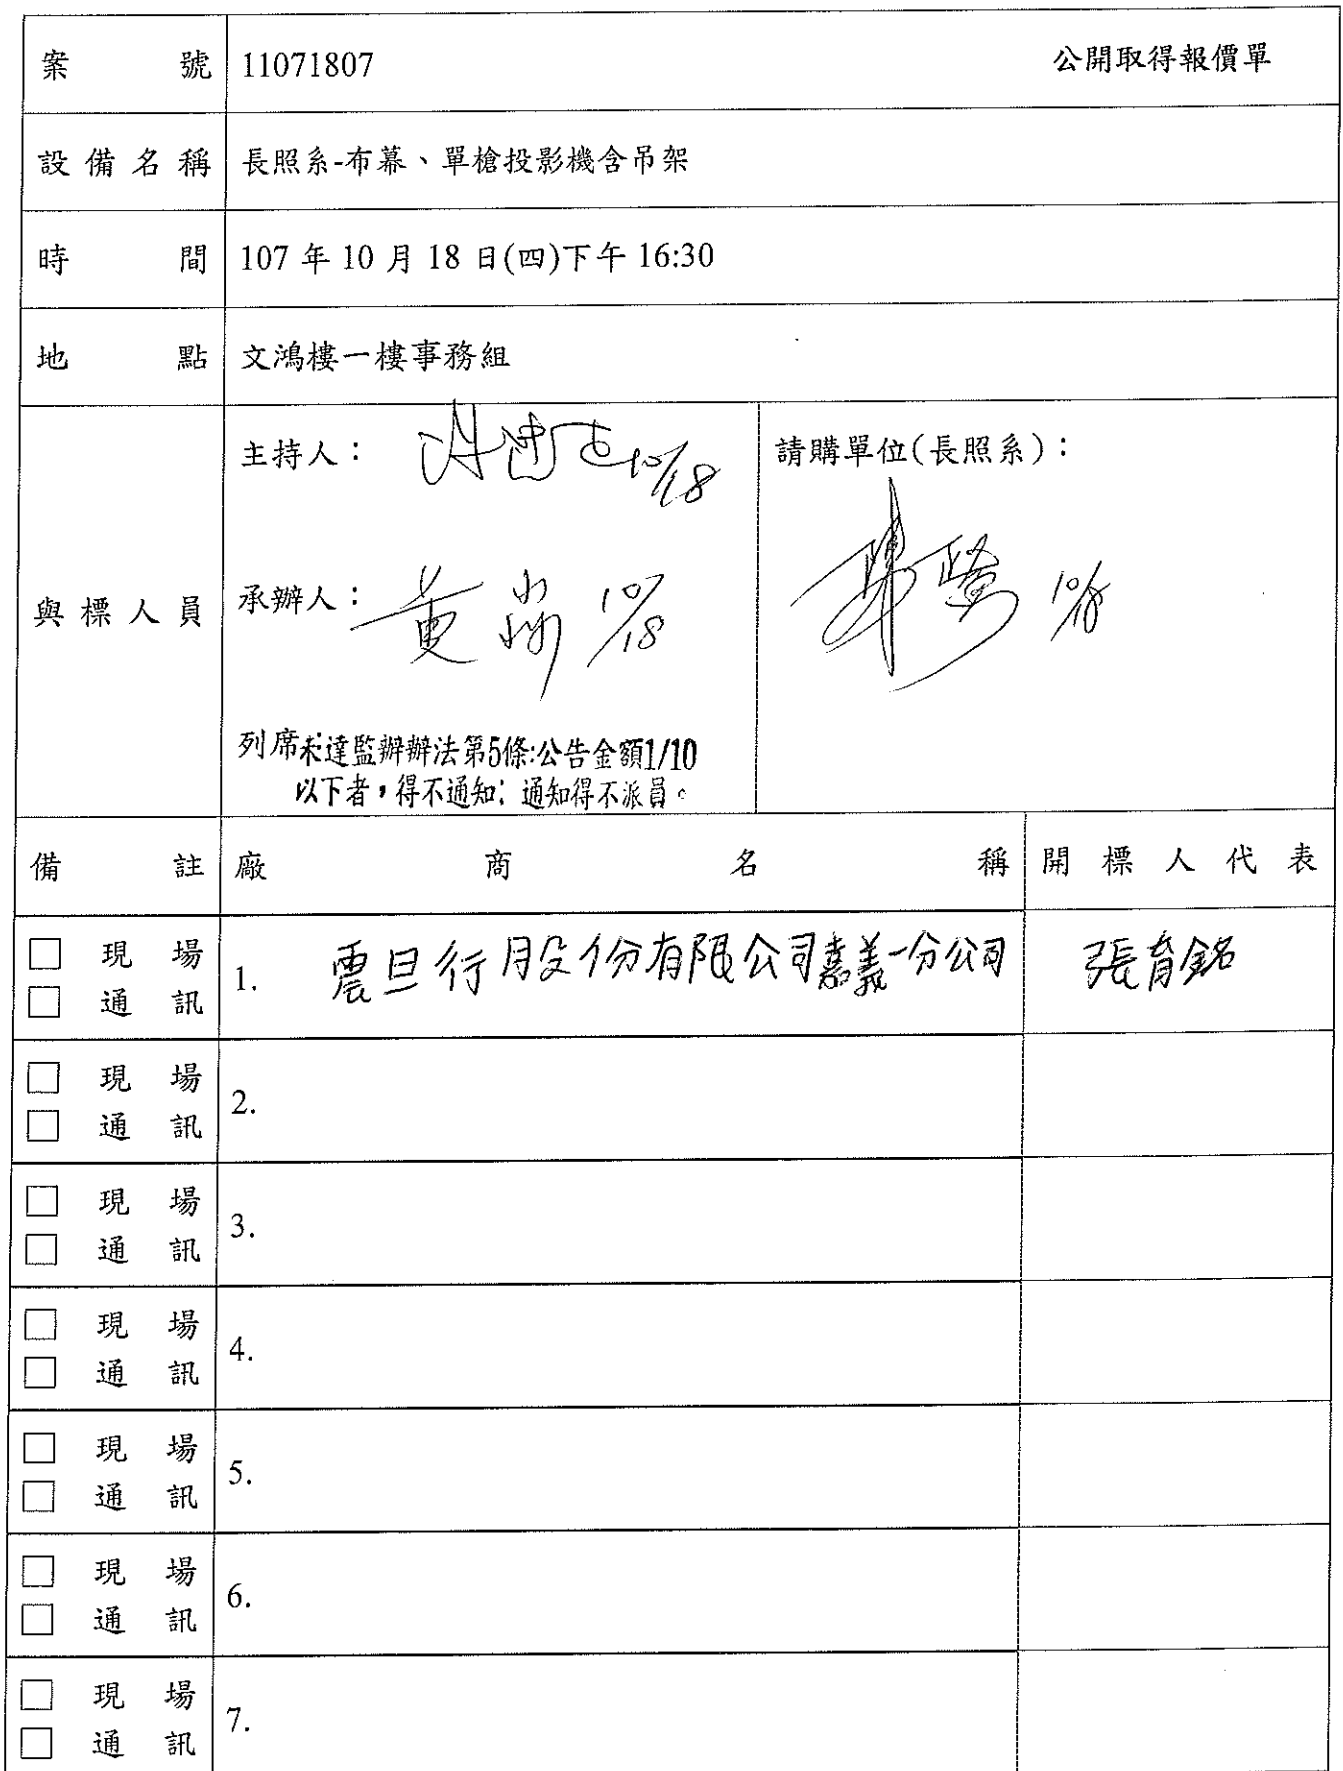 案號 11071807 公開取得報價單
設備名稱 長照系-布幕、單槍投影機含吊架
時間 107 年 10 月 18 日(四)下午 16:30
地點 文鴻樓一樓事務組
與標人員
主持人： 10/18
請購單位(長照系)：
10/18
承辦人： 黃 10/18
列席未達監辦辦法第5條:公告金額1/10
以下者，得不通知；通知得不派員。
備註 廠商名稱 開標人代表
□ 現場
□ 通訊
1. 震旦行股份有限公司嘉義分公司 張育銘
□ 現場
□ 通訊
2.
□ 現場
□ 通訊
3.
□ 現場
□ 通訊
4.
□ 現場
□ 通訊
5.
□ 現場
□ 通訊
6.
□ 現場
□ 通訊
7.